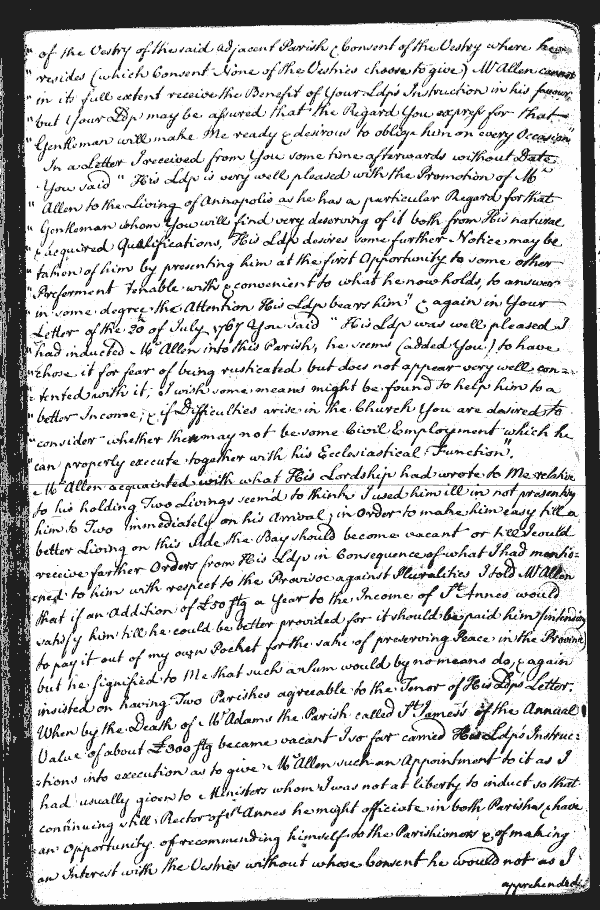 " of the Vestry of the said adjacent Parish & Consent of the Vestry where he
" resides (which Consent None of the Vestries choose to give) Mr. Allen cannot
" in its full extent receive the Benefit of Your Ldps Instruction in his favour
" but Your Ldp may be assured that the Regard You express for that
" Gentleman will make Me ready & desirous to oblige him on every Occasion"
In a Letter I received from You some time afterwards without Date
You said " His Ldp is very well pleased with the Promotion of Mr.
" Allen to the Living of Annapolis as he has a particular Regard for that
" Gentleman whom You will find very deserving of it both from His natural
" & acquired Qualifications, His Ldp desires some further Notice may be
" taken of him by presenting him at the first Opportunity to some other
" Preferment tenable with & convenient to what he now holds, to answer
" in some degree the Attention His Ldp bears him" & again in Your
Letter of the 20 of July 1767 You said " His Ldp was well pleased I
" had inducted Mr. Allen into this Parish, he seems (added You) to have
" chose it for fear of being rusticated but does not appear very well con=
" tented with it; I wish some means might be found to help him to a
" better Income, & if Difficulties arise in the Church You are desired to
" consider whether there may not be some Civil Employment which he
" can properly execute together with his Ecclesiastical Function".
Mr. Allen acquainted with what His Lordship had wrote to Me relative
to his holding Two Livings seem'd to think I used him ill in not presenting
him to Two immediately on his Arrival; in Order to make him easy till a
better Living on this side the Bay should become vacant or till I could
receive farther Orders from His Ldp in Consequence of what I had mentio=
=ned to him with respect to the Provisoe against Pluralities I told Mr. Allen
that if an Addition of £50 stg a Year to the Income of St. Annes would
satisfy him till he could be better provided for it should be paid him (intending
to pay it out of my own Pocket for the sake of preserving Peace in the Province)
but he signified to Me that such a Sum would by no means do, & again
insisted on having Two Parishes agreeable to the Tenor of His Ldps Letter.
When by the Death of Mr. Adams the Parish called St. James's of the Annual
Value of about £300 stg became vacant I so far carried His Ldps Instruc=
=tions into execution as to give Mr. Allen such an Appointment to it as I
had usually given to Ministers whom I was not at liberty to induct so that
continuing still Rector of St. Annes he might officiate in both Parishes & have
an Opportunity of recommending himself to the Parishioners & of making
an Interest with the Vestries without whose Consent he would not as I
apprehended